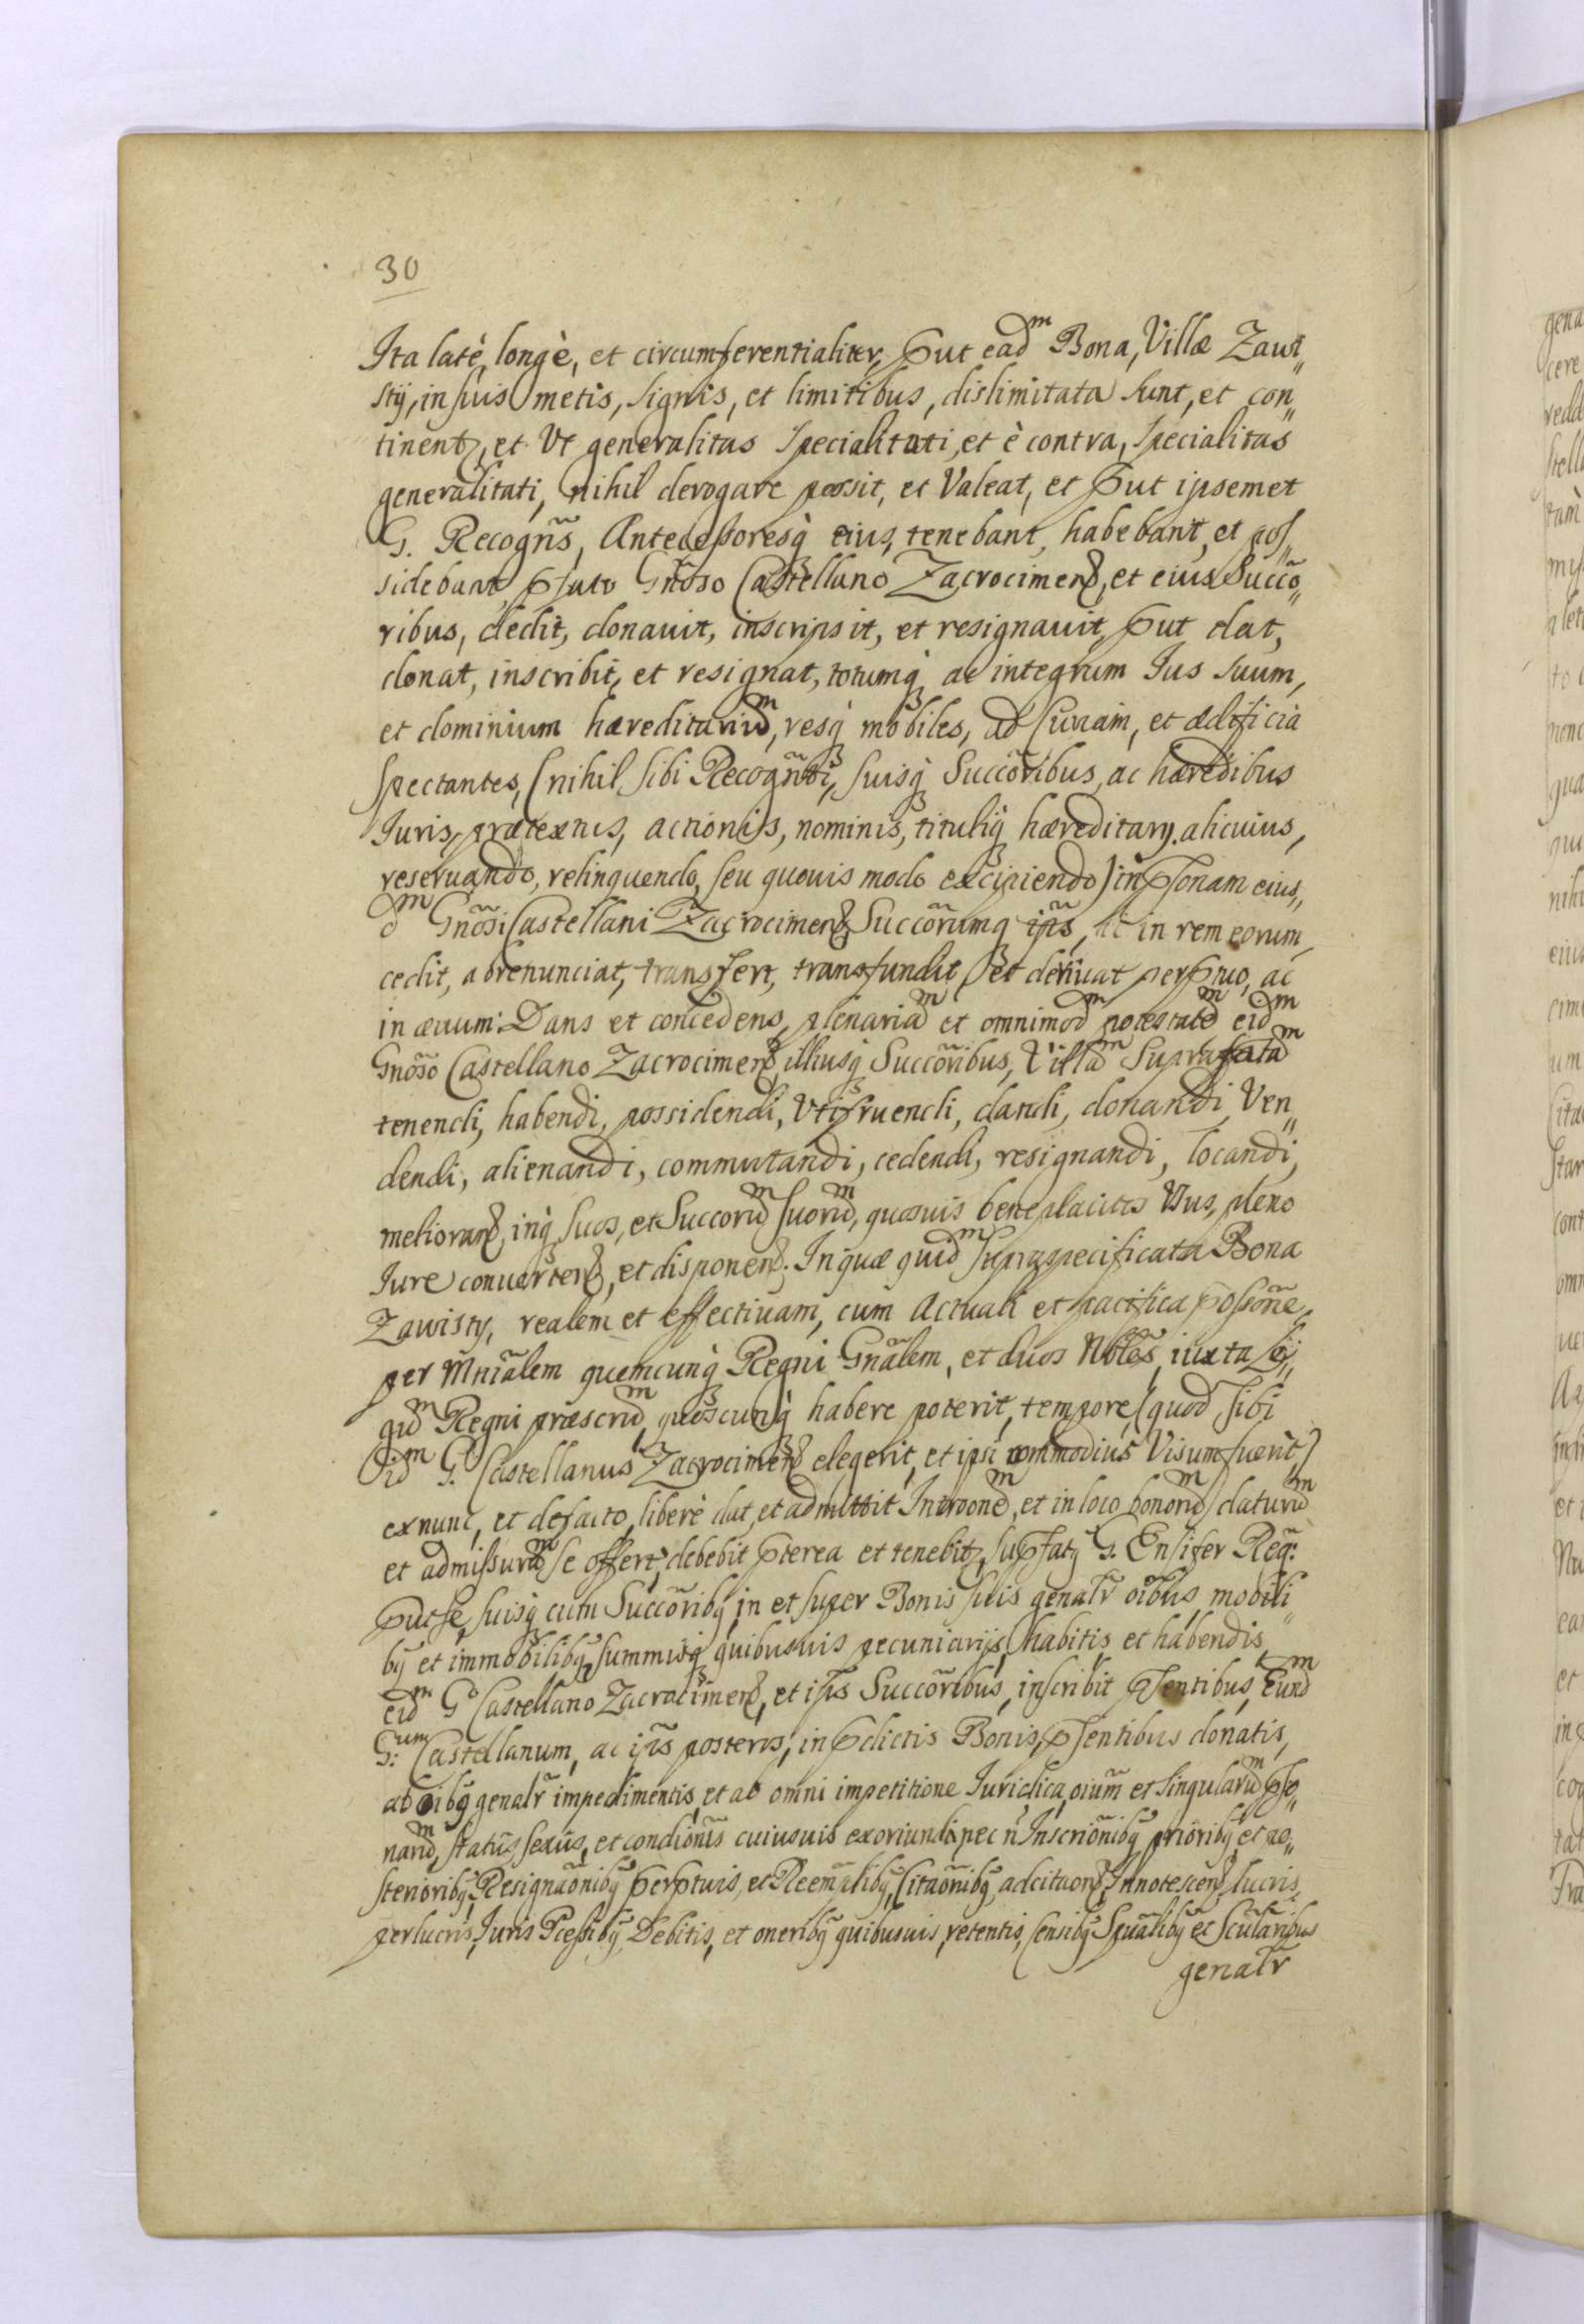 30
Ita latè, longè, et circumferentialiter, ꝓut eadᵐ Bona, Villæ Zawi„
stÿ, in suis metis, signis, et limitibus, dislimitata sunt, et con„
tinentꝫ, et Vt generalitas specialitati, et è contra, specialitas
generalitati, nihil derogare possit, et Valeat, et ꝓut ipsemet
G. Recogñs, Antecessoresqꝫ eius, tenebant, habebant, et pos„
sidebant, p̱fato Gñoso Castellano Zacrocimenꝫ, et eius Succõ„
ribus, dedit, donauit, inscripsit, et resignauit, ꝓut dat,
donat, inscribit, et resignat, totumqꝫ ac integrum Ius suum,
et dominium hæreditariuᵐ, resqꝫ mobiles, ad Curiam, et ædificia
spectantes, (nihil sibi Recogñti, suisqꝫ Succõribus, ac hæredibus
Iuris, prætextus, actionis, nominis, tituliqꝫ hæreditarÿ alicuius,
reseruando, relinquendo, seu quouis modo excipiendo) in p̱sonam eius„
dᵐ Gñosi Castellani Zacrocimenꝫ Succõrumqꝫ ip̃s, ac in rem eorum
cedit, abrenunciat, transfert, transfundit, et deriuat perp̱tuo, ac
in æuum: Dans et concedens, plenariaᵐ et omnimodᵐ potestateᵐ eidᵐ
Gñoso Castellano Zacrocimenꝫ, illiusqꝫ Succõribus, Villaᵐ Suprafataᵐ
tenendi, habendi, possidendi, Vtifruendi, dandi, donandi, Ven„
dendi, alienandi, commutandi, cedendi, resignandi, locandi,
meliorandꝫ, inqꝫ suos, et Succoruᵐ suoruᵐ, quosuis beneplacitos Vsus, pleno
Iure conuertendꝫ, et disponendꝫ. In quæ quidᵐ supraspecificata Bona
Zawisty, realem et effectiuam, cum Actuali et pacifica possõne,
per Mniãlem quemcunqꝫ Regni Gñalem, et duos Nobles, iuxta Le„
guᵐ Regni præscruᵐ, quoscunqꝫ habere poterit, tempore (quod sibi
idᵐ G. Castellanus Zacrocimenꝫ elegerit, et ipsi commodius Visum fuerit)
exnunc, et defacto, liberè dat, et admittit Introoneᵐ, et in loco bonoruᵐ daturuᵐ
et admissuruᵐ se offert, debebit p̱terea et tenebitꝫ, sup̱fatÿ G. Ensifer Reg:
ꝓut se, suisqꝫ cum Succõribꝫ, in et super Bonis suis genalr̃ oĩbus mobili„
bꝫ et immobilibꝫ, summisqꝫ quibusuis pecuniarijs, habitis et habendis
eidᵐ Gᵒ Castellano Zacrocimenꝫ, et ip̃s Succõribus, inscribit p̱sentibus, Eundᵐ
G:ᵘᵐ Castellanum, ac ip̃s posteros, in p̱dictis Bonis, p̱sentibus donatis,
ab oĩbꝫ genalr̃ impedimentis, et ab omni impetitione Iuridica, oium et singularuᵐ p̱so„
naruᵐ, statûs, sexûs, et condiõnis cuiusuis exoriundi, nec ñ Inscriõnibꝫ prioribꝫ et po„
sterioribꝫ, Resignaõnibꝫ perp̱tuis, et Reemalibꝫ, Citaõnibꝫ, adcitaonꝫ, Innotescenꝫ, lucris,
perlucris, Iuris Pcessibꝫ, Debitis, et oneribꝫ quibusuis, retentis, Censibꝫ Spualibꝫ et Scularibus
genalr̃